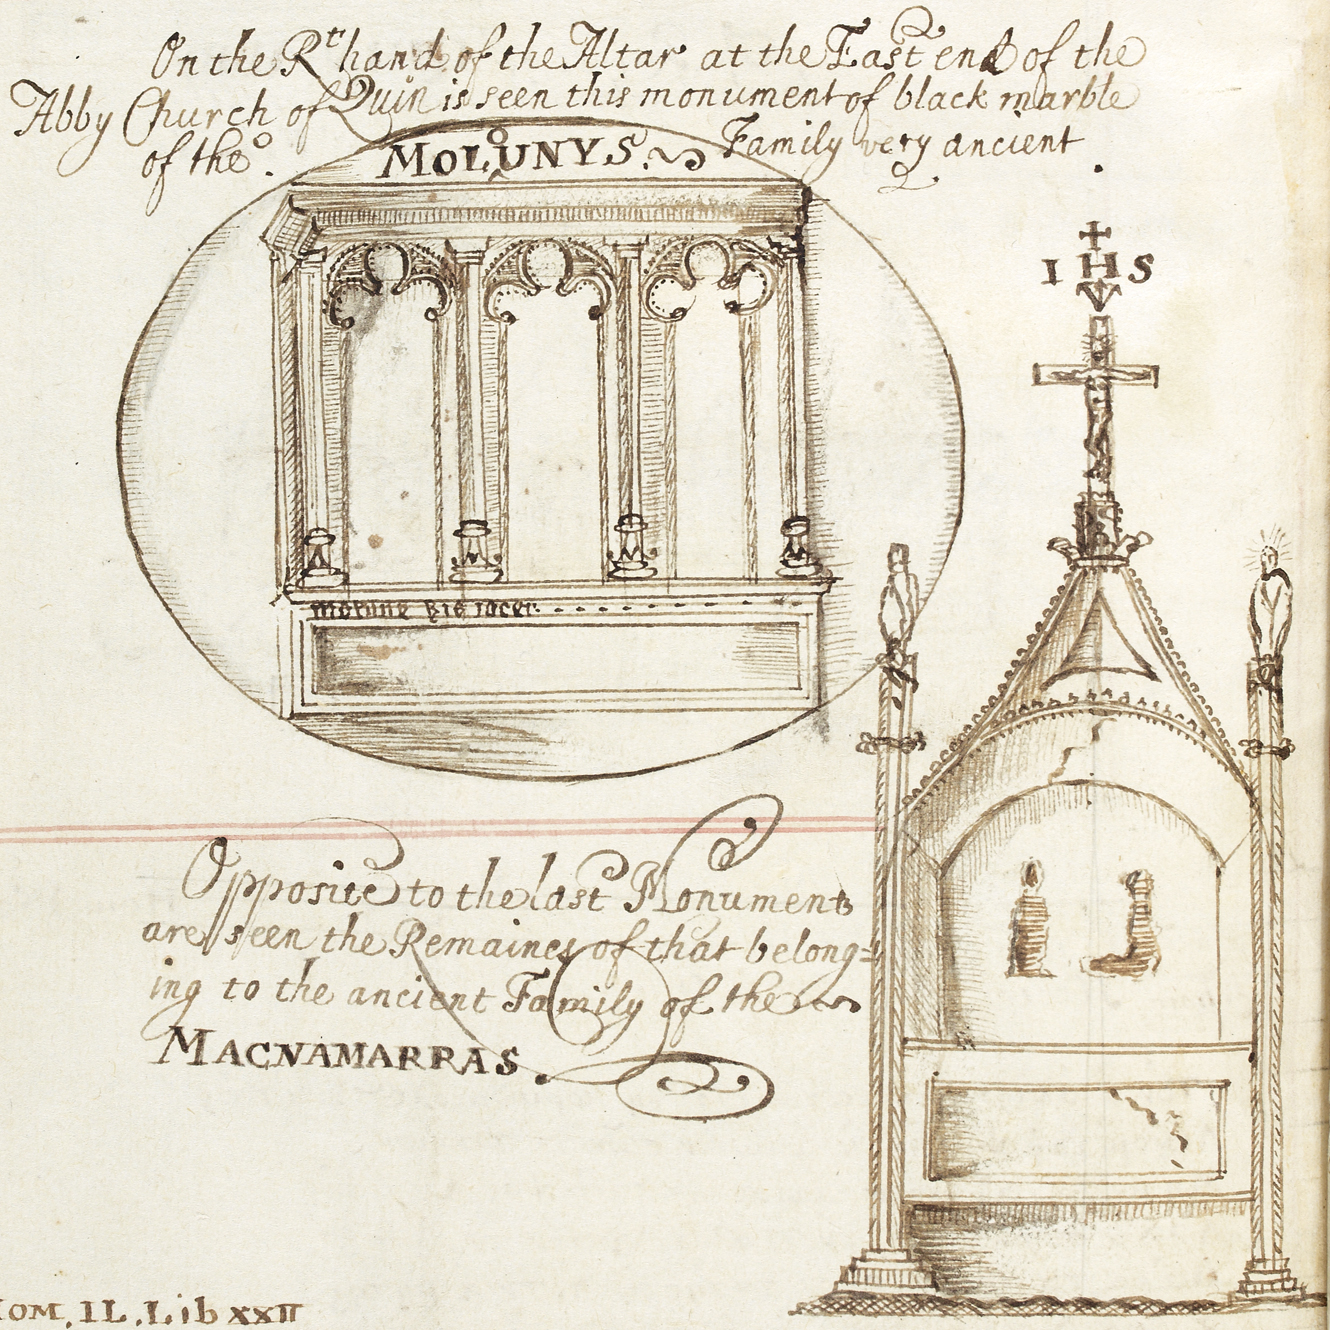 On the Rt hand of the Altar at the East end of the
Abby Church of Quin is seen this monument of black marble
of the MOLUNYS. Family very ancient
IHS
hic jacet
Opposite to the last Monument
are seen the Remaines of that belong=
ing to the ancient Family of the
MACNAMARRAS.
TOM. II. Lib XXII